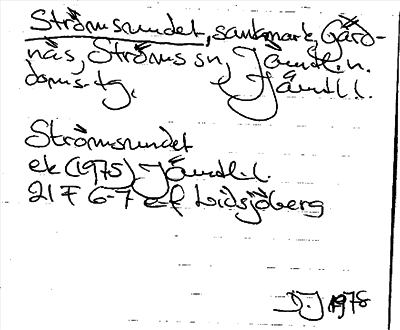 Strömsrundet, sankmark, Gärd-
näs, Ströms sn, Jämtl. n.
doms.tg, Jämtl. l.
Strömsrundet
ek (1975) Jämtl. l.
21 F 6-7 e-f Lidsjöberg
D.J 1978